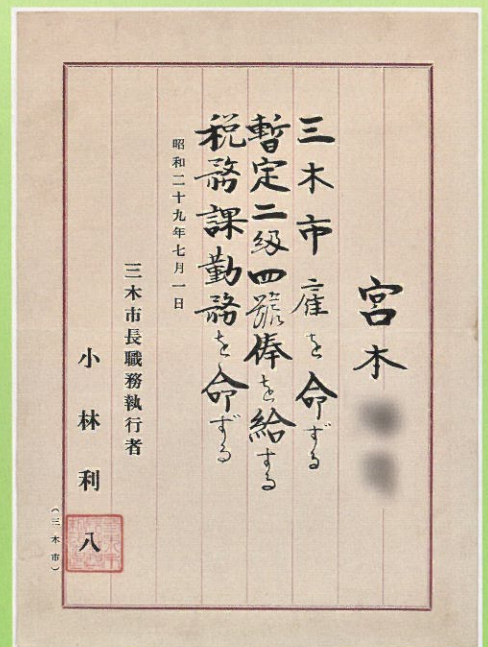 宮木
三木市雇を命ずる
暫定二級四號俸を給する
税務課勤務を命ずる
昭和二十九年七月一日
三木市長職務執行者
小林利八
(三木市)